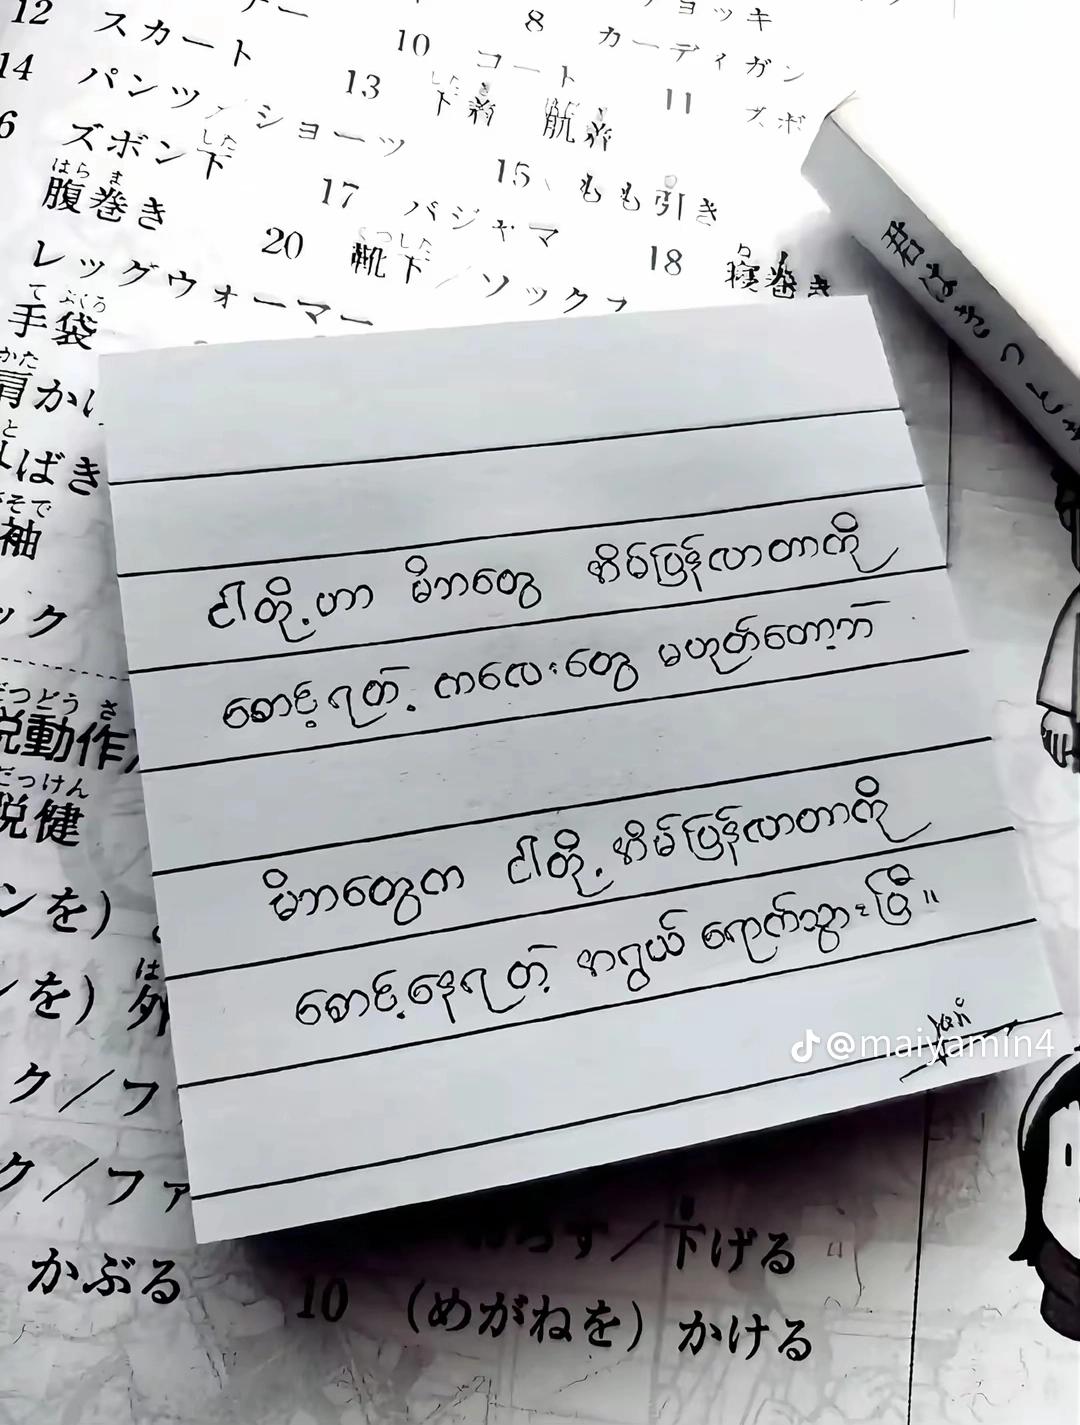 12 スカート
10 コート
8 カーディガン
チョッキ
14 パンツ/ショーツ
13 下着 肌着
11 ズボ
6 ズボン下
15 もも引き
腹巻き
17 パジャマ
18 寝巻き
20 靴下/ソックス
レッグウォーマー
手袋
肩か
ばき
袖
ック
脱動作
脱健
ンを)
を)
ク/フ
ク/ファ
かぶる
下げる
10 (めがねを) かける
君はきっと
ငါတို့ဟာ မိဘတွေ အိမ်ပြန်လာတာကို
စောင့်ရတဲ့ ကလေးတွေ မဟုတ်တော့ဘဲ
မိဘတွေက ငါတို့ အိမ်ပြန်လာတာကို
စောင့်နေရတဲ့ အရွယ် ရောက်သွားပြီ။
@maiyamin4